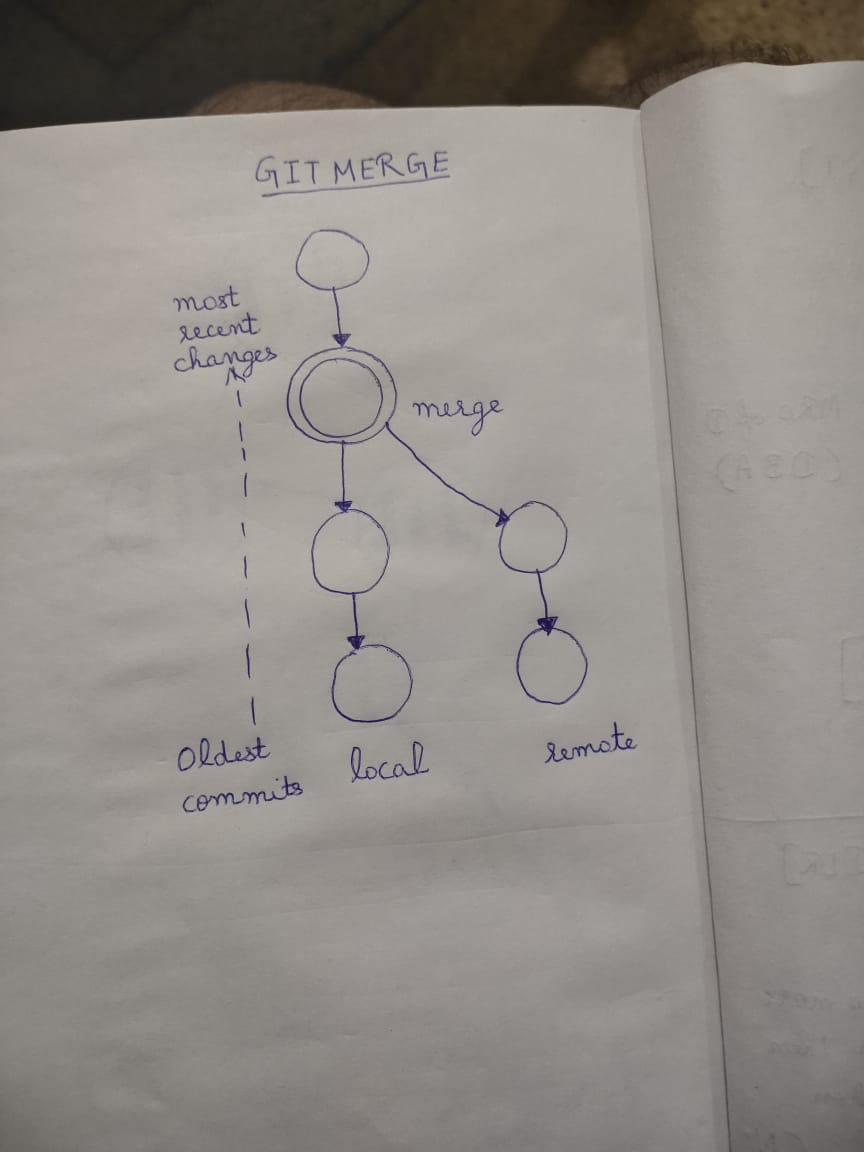 GIT MERGE
most
recent
changes
merge
Oldest
commits
local
remote